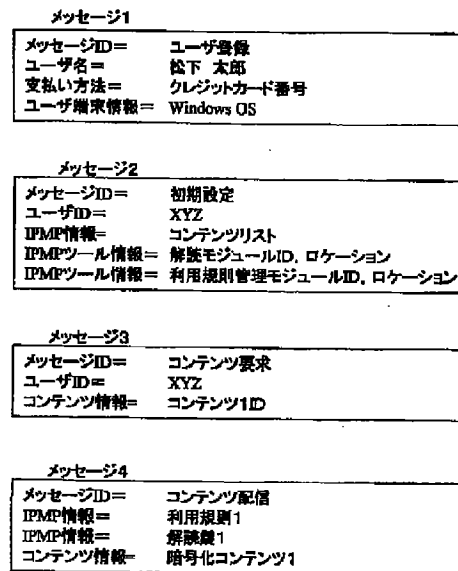 メッセージ1
メッセージID＝ ユーザ登録
ユーザ名＝ 松下 太郎
支払い方法＝ クレジットカード番号
ユーザ端末情報＝ Windows OS
メッセージ2
メッセージID＝ 初期設定
ユーザID＝ XYZ
IPMP情報＝ コンテンツリスト
IPMPツール情報＝ 解読モジュールID，ロケーション
IPMPツール情報＝ 利用規則管理モジュールID，ロケーション
メッセージ3
メッセージID＝ コンテンツ要求
ユーザID＝ XYZ
コンテンツ情報＝ コンテンツ1ID
メッセージ4
メッセージID＝ コンテンツ配信
IPMP情報＝ 利用規則1
IPMP情報＝ 解読鍵1
コンテンツ情報＝ 暗号化コンテンツ1